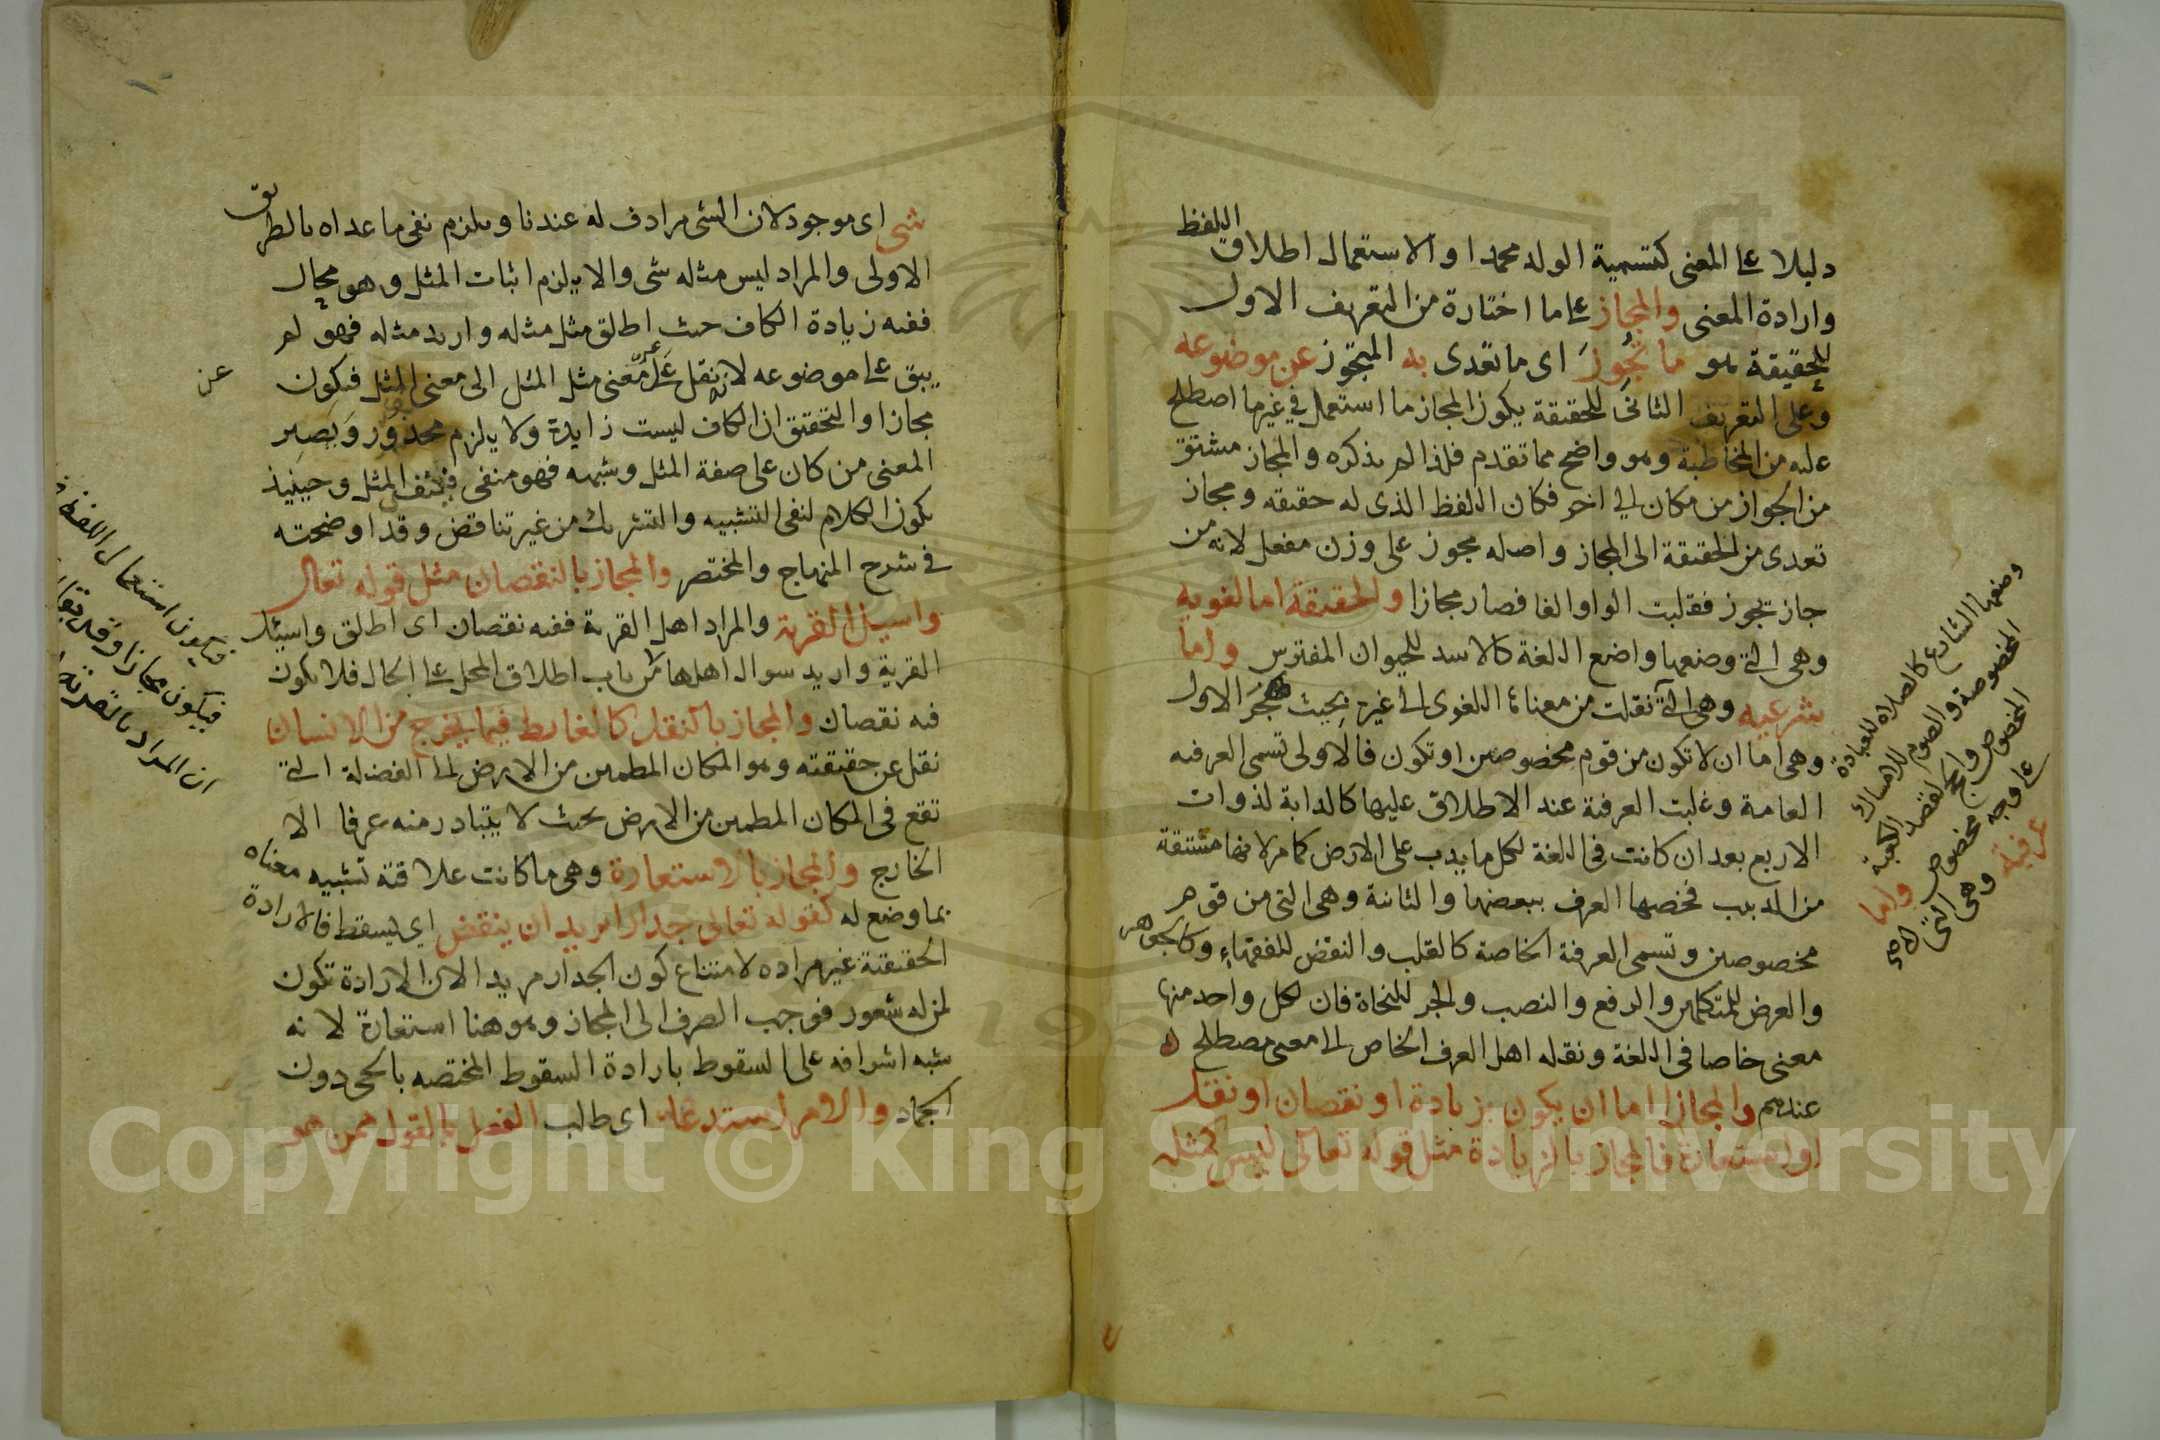 دليلا على المعنى كتسمية الولد محمدا والاستعمال اطلاق اللفظ
وارادة المعنى والمجاز على ما اختاره من التعريف الاول
للحقيقة هو ما تُجُوِّزَ اى ما تعدى به المتجوز عن موضوعه
وعلى التعريف الثانى للحقيقة يكون المجاز ما استعمل في غير ما اصطلح
عليه من المخاطبة وهو واضح مما تقدم فلذا لم يذكره والمجاز مشتق
من الجواز من مكان الى اخر فكان اللفظ الذى له حقيقه ومجاز
تعدى من الحقيقة الى المجاز واصله مجوز على وزن مفعل لانه من
جاز يجوز فقلبت الواو الفا فصار مجازا والحقيقة اما لغويه
وهى التى وضعها واضع اللغة كالاسد للحيوان المفترس واما
شرعيه وهى التى نقلت من معناها اللغوى الى غيره بحيث هُجِرَ الاول
وهى اما ان لا تكون من قوم مخصوصين او تكون فالاولى تسمى العرفيه
العامة وغلبت العرفية عند الاطلاق عليها كالدابة لذوات
الاربع بعد ان كانت فى اللغة لكل ما يدب على الارض كما مر لانها مشتقة
من الدبيب فخصها العرف ببعضها والثانية وهى التى من قوم
مخصوصين وتسمى العرفية الخاصة كالقلب والنقض للفقهاء وكالجوهر
والعرض للمتكلمين والرفع والنصب والجر للنحاة فان لكل واحد منها
معنى خاصا فى اللغة ونقله اهل العرف الخاص الى معنى مصطلح
عندهم والمجاز اما ان يكون بزيادة او نقصان او نقل
او استعارة فالمجاز بالزيادة مثل قوله تعالى ليس كمثله
وضعها الشارع كالصلاة للعبادة
المخصوصة والصوم للامساك
المخصوص والحج لقصد الكعبة
على وجه مخصوص واما
عرفية وهى التى
شى اى موجود لان الشى مرادف له عندنا ويلزم نفى ما عداه بالطريق
الاولى والمراد ليس مثله شى والا يلزم اثبات المثل وهو محال
ففيه زيادة الكاف حيث اطلق مثل مثله واريد مثله فهو لم
يبق على موضوعه لانه نقل عن معنى مثل المثل الى معنى المثل فيكون
عن
مجازا والتحقيق ان الكاف ليست زايدة ولا يلزم محذور ويصير
المعنى من كان على صفة المثل وشبهه فهو منفى فينتفى المثل وحينيذ
يكون الكلام لنفى التشبيه والتشريك من غير تناقض وقد اوضحته
فى شرح المنهاج والمختصر والمجاز بالنقصان مثل قوله تعالى
واسيل القرية والمراد اهل القرية ففيه نقصان اى اطلق واسيل
القرية واريد سوال اهلها من باب اطلاق المحل على الحال فلا يكون
فيه نقصان والمجاز بالنقل كالغايط فيما يخرج من الانسان
نقل عن حقيقته وهو المكان المطمين من الارض الى الفضلة التى
تقع فى المكان المطمين من الارض بحيث لا يتبادر منه عرفا الا
الخارج والمجاز بالاستعارة وهى ما كانت علاقته تشبيه معناه
بما وضع له كقوله تعالى جدارا يريد ان ينقض اى يسقط فالارادة
الحقيقية غير مراده لامتناع كون الجدار مريدا لان الارادة تكون
لمن له شعور فوجب الصرف الى المجاز وهو هنا استعارة لانه
شبه اشرافه على السقوط بارادة السقوط المختصه بالحى دون
الجماد والامر استدعاء اى طلب الفعل بالقول ممن هو
فيكون استعمال اللفظ
فيكون مجازا وقد يقال
ان المراد بالقرية
Copyright © King Saud University
195